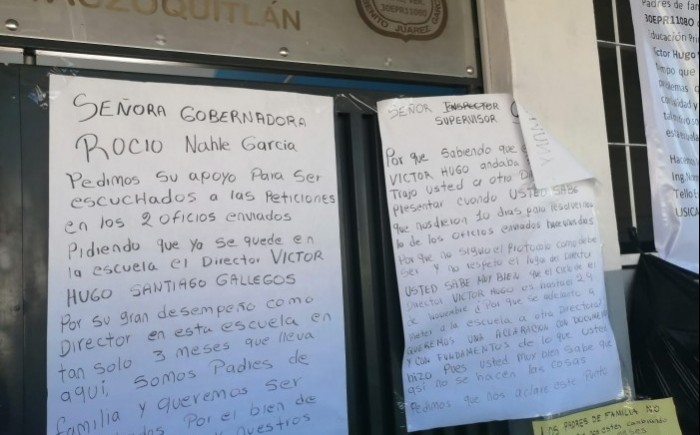 AUZOQUITLÁN
30EPR1108O
BENITO JUAREZ GARC
SEÑORA GOBERNADORA
ROCIO Nahle Garcia
Pedimos su apoyo Para ser
escuchados a las Peticiones
en los 2 oficios enviados
Pidiendo que ya se quede en
la escuela el Director VICTOR
HUGO SANTIAGO GALLEGOS
Por su gran desempeño como
Director en esta escuela en
tan solo 3 meses que lleva
aquí, somos Padres de
familia y queremos ser
Por el bien de
nuestros
SEÑOR INSPECTOR
SUPERVISOR
Por que Sabiendo que
VICTOR HUGO andaba
Trajo usted a otro
Presentar cuando USTED SABE
que nos dieron 10 dias para resolvernos
lo de los oficios enviados hace unos dias
Por que no siguio el Protocolo como debe
ser y no respeto el lugar del Director
USTED SABE MUY BIEN que el ciclo de el
Director VICTOR HUGO es hasta el 24
de Noviembre ¿Por que se adelanto a
meter a la escuela a otro Director?
QUEREMOS UNA ACLARACION CON DOCUMENTOS
Y CON FUNDAMENTOS de lo que usted
hizo Pues usted muy bien sabe que
asi no se hacen las cosas
Pedimos que nos aclare este Punto
Padres de fam
30EPR1108O
Educación Pri
ictor Hugo
mpo que
LOS PADRES DE FAMILIA NO